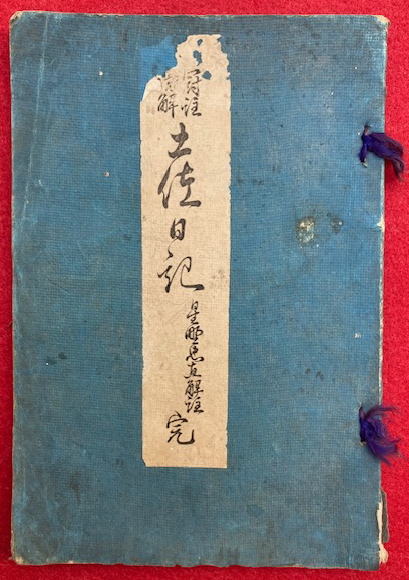 冠註
解
土佐日記
星野忠直解註
完